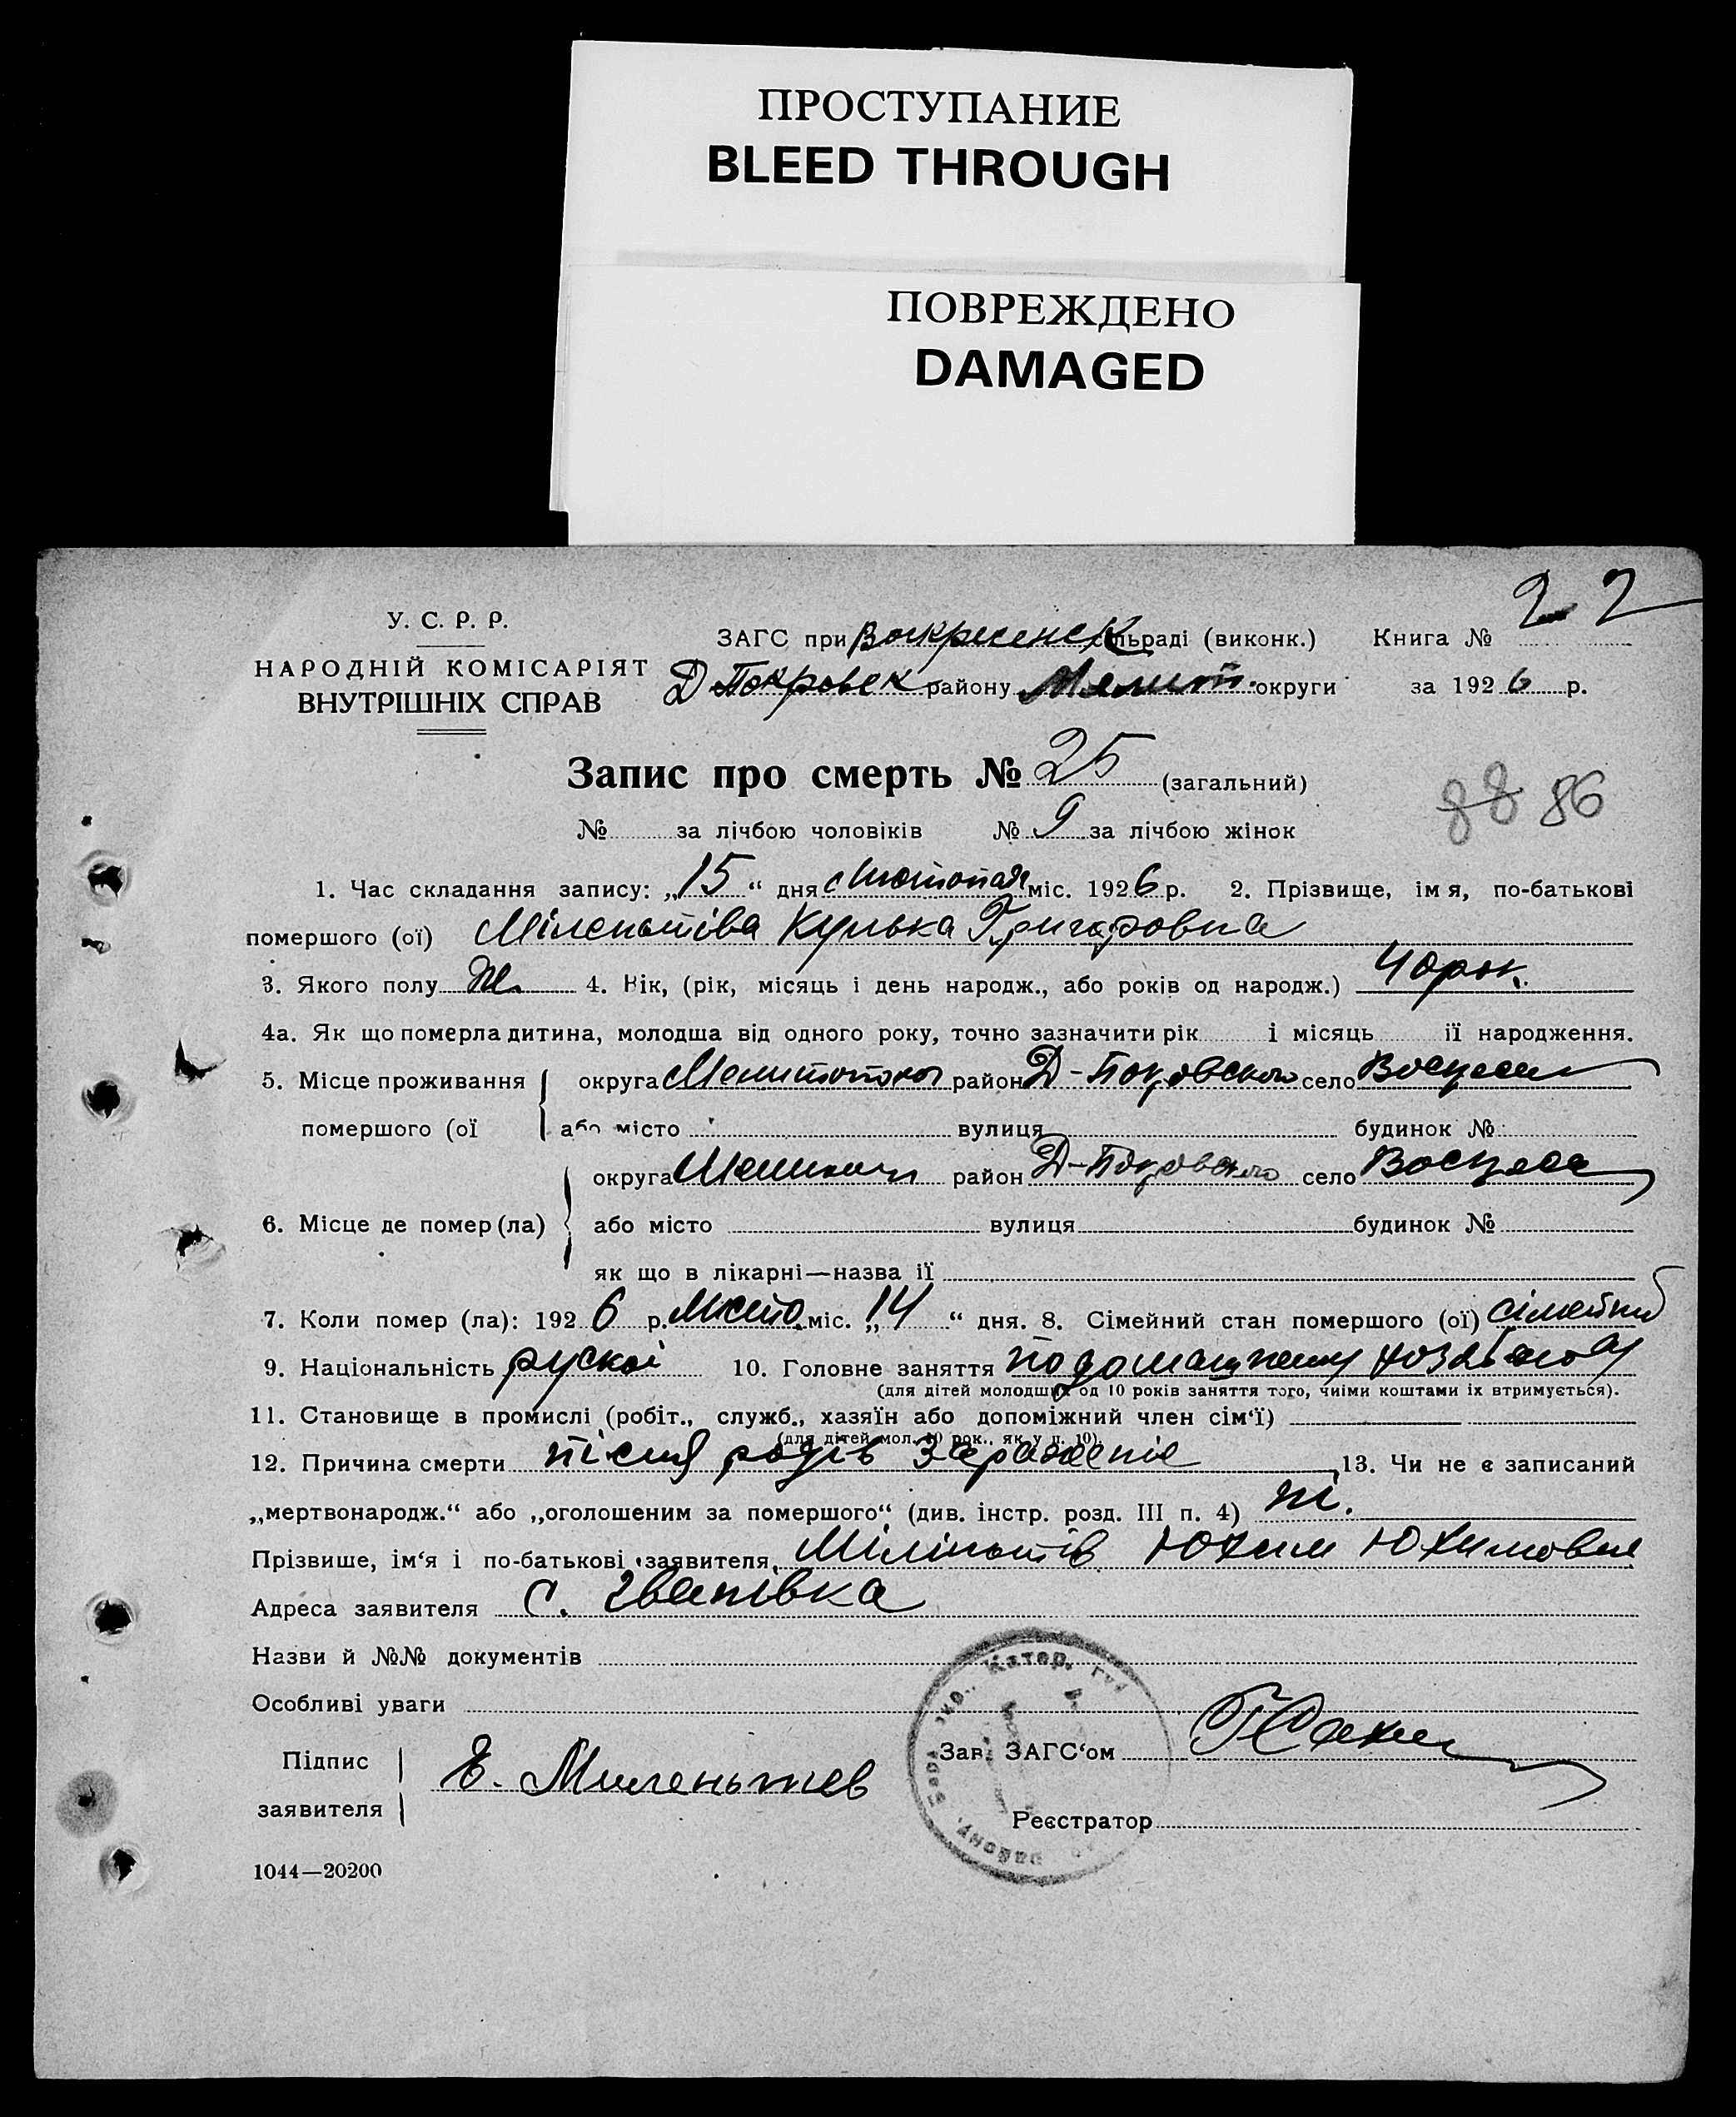 ПРОСТУПАНИЕ
BLEED THROUGH
ПОВРЕЖДЕНО
DAMAGED
У. С. Р. Р.
НАРОДНІЙ КОМІСАРІЯТ
ВНУТРІШНІХ СПРАВ
ЗАГС при Воскресенск сільраді (виконк.) Книга № 2
Д Покровск району Мелит. округи за 1926 р.
Запис про смерть № 25 (загальний)
88 86
№ за лічбою чоловіків № 9 за лічбою жінок
1. Час складання запису: „15“ дня Листопад міс. 1926 р. 2. Прізвище, ім я, по-батькові
помершого (ої) Міленьтіва Григоровна
3. Якого полу ж. 4. Вік, (рік, місяць і день народж., або років од народж.) 40 рок.
4а. Як що померла дитина, молодша від одного року, точно зазначити рік і місяць ії народження.
5. Місце проживання округа район Д-Покровского село
помершого (ої або місто вулиця будинок №
округа район Д-Покровского село
6. Місце де помер (ла) або місто вулиця будинок №
як що в лікарні—назва ії
7. Коли помер (ла): 1926 р. Листо. міс. „14“ дня. 8. Сімейний стан помершого (ої) сімейний
9. Національність рускої 10. Головне заняття по домашнему
(для дітей молодших од 10 років заняття того, чиіми коштами іх втримується).
11. Становище в промислі (робіт., служб., хазяїн або допоміжний член сім‘ї)
(для дітей мол. 10 рок., як у п. 10)
12. Причина смерти після родів Зараженіе 13. Чи не є записаний
„мертвонародж.“ або „оголошеним за помершого“ (див. інстр. розд. III п. 4) ні.
Прізвише, ім‘я і по-батькові заявителя Юхим Юхимович
Адреса заявителя с. Іванівка
Назви й №№ документів
Особливі уваги
Катер.
району.
Підпис
заявителя Е. Миленьтев
Зав. ЗАГС‘ом
Реєстратор
1044—20200